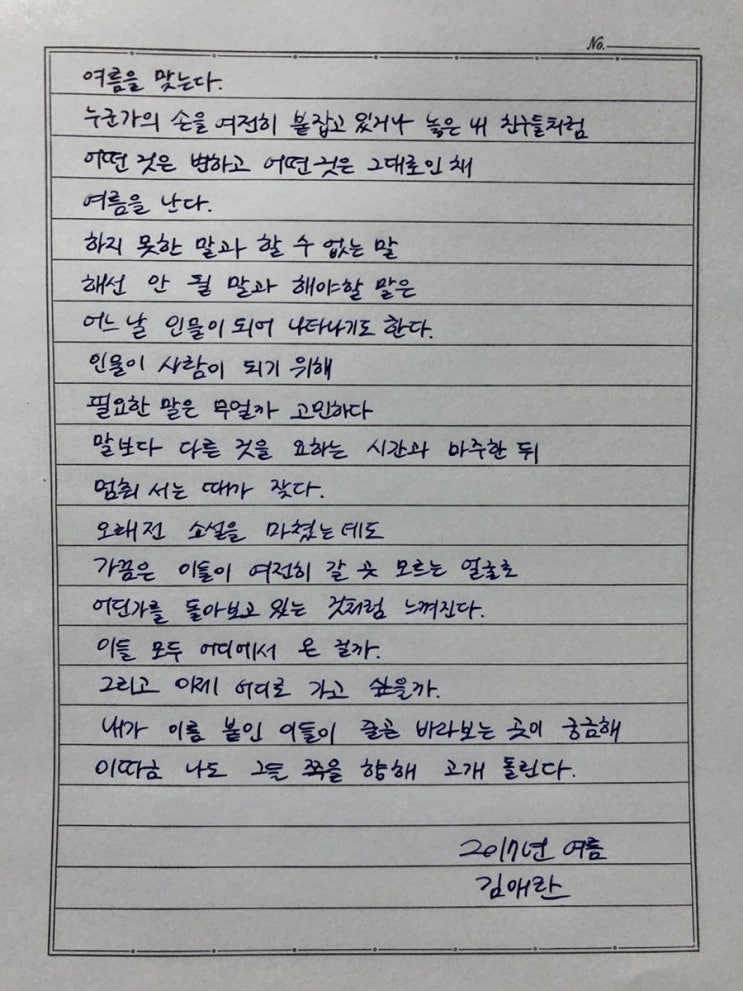 No.
여름을 맞는다.
누군가의 손을 여전히 붙잡고 있거나 놓은 내 친구들처럼
어떤 것은 변하고 어떤 것은 그대로인 채
여름을 난다.
하지 못한 말과 할 수 없는 말
해선 안 될 말과 해야할 말은
어느 날 인물이 되어 나타나기도 한다.
인물이 사람이 되기 위해
필요한 말은 무얼까 고민하다
말보다 다른 것을 요하는 시간과 마주한 뒤
멈춰 서는 때가 잦다.
오래전 소설을 마쳤는데도
가끔은 이들이 여전히 갈 곳 모르는 얼굴로
어딘가를 돌아보고 있는 것처럼 느껴진다.
이들 모두 어디에서 온 걸까.
그리고 이제 어디로 가고 싶을까.
내가 이름 붙인 이들이 줄곧 바라보는 곳이 궁금해
이따금 나도 그들 쪽을 향해 고개 돌린다.
2017년 여름
김애란